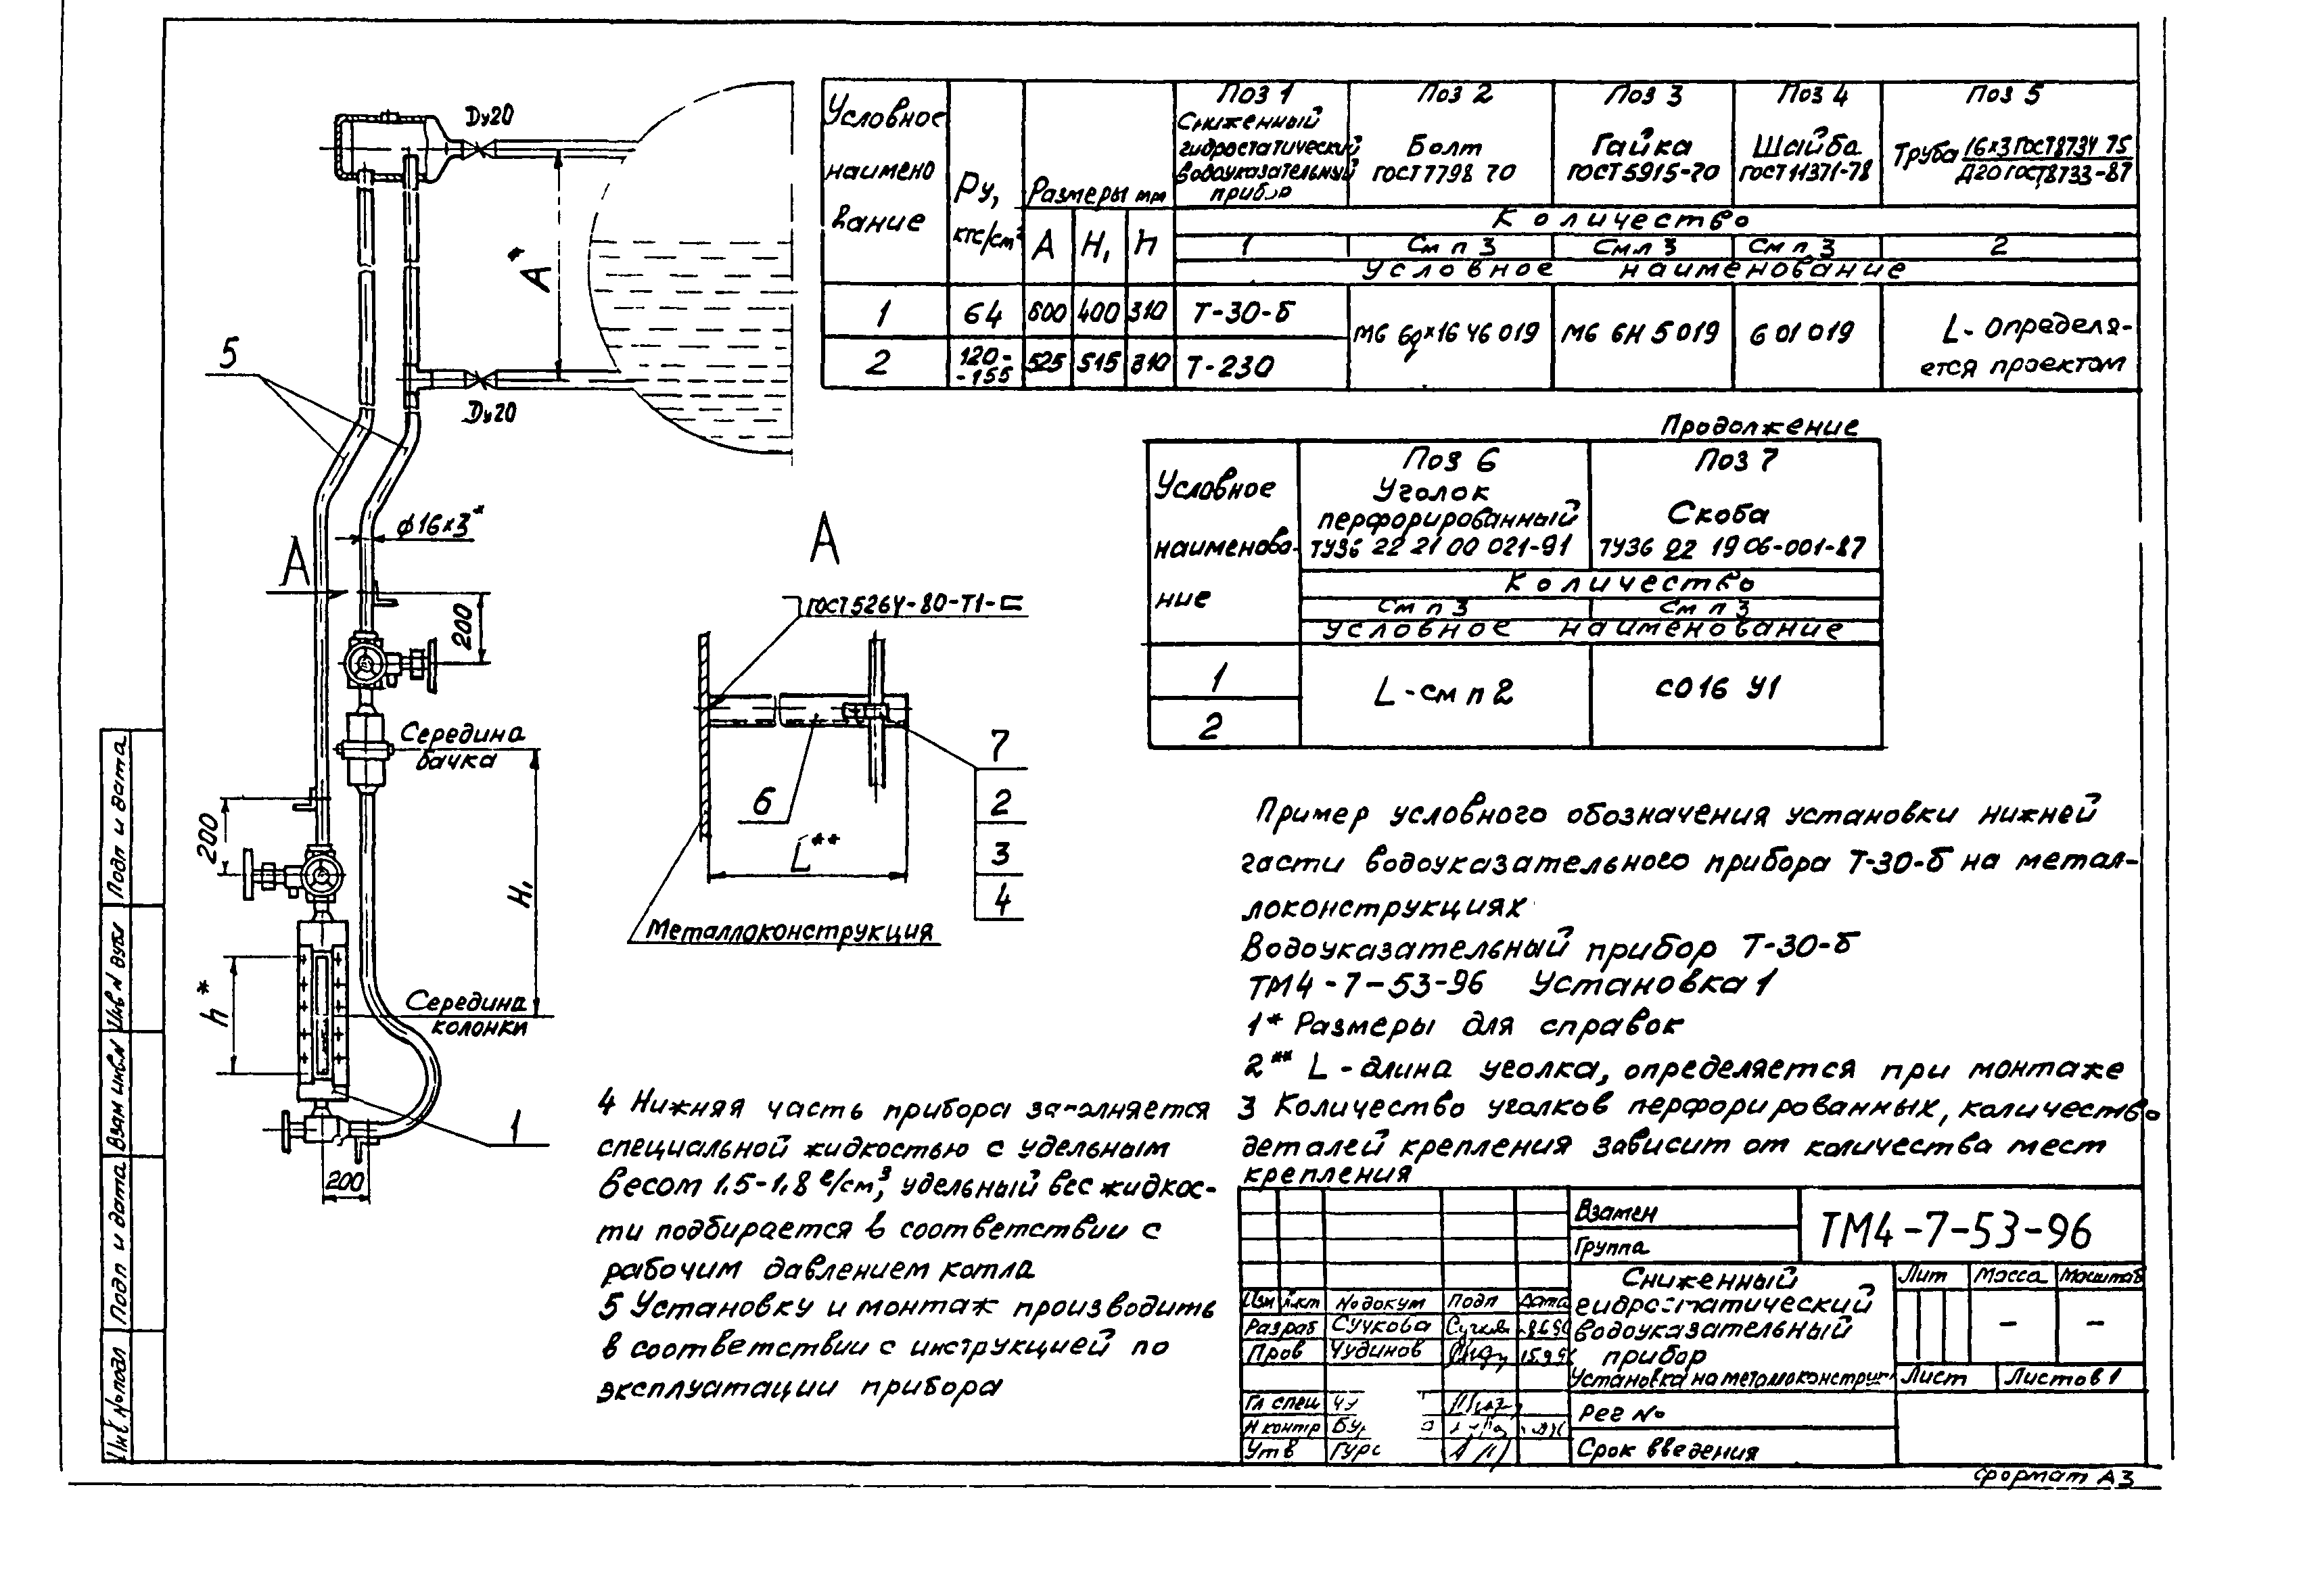 Условное
наимено
вание
Ру,
кгс/см²
Размеры мм
А Н₁ h
Поз 1
Сниженный
гидростатический
водоуказательный
прибор
Поз 2
Болт
ГОСТ 7798 70
Поз 3
Гайка
ГОСТ 5915-70
Поз 4
Шайба
ГОСТ 11371-78
Поз 5
Труба 16х3 ГОСТ 8734 75
Д20 ГОСТ 8733-87
Количество
1 См п 3 См п 3 См п 3 2
Условное наименование
1 64 600 400 310 Т-30-б
2 120-
-155 525 515 310 Т-230
М6 6gх16 46 019 М6 6Н 5 019 6 01 019
L- определя-
ется проектом
Продолжение
Условное
наименова-
ние
Поз 6
Уголок
перфорированный
ТУ36 22 21 00 021-91
Поз 7
Скоба
ТУ36 22 19 06-001-87
Количество
См п 3 См п 3
Условное наименование
1
2
L-см п 2
СО16 У1
Ду20
А*
5
Ду20
ϕ16х3*
А
200
Середина
бачка
200
Н₁
h*
Середина
колонки
1
200
А
ГОСТ 5264-80-Т1-⊏
7
2
3
4
6
L**
Металлоконструкция
Пример условного обозначения установки нижней
части водоуказательного прибора Т-30-б на метал-
локонструкциях
Водоуказательный прибор Т-30-б
ТМ4-7-53-96 Установка 1
1* Размеры для справок
2** L - длина уголка, определяется при монтаже
3 Количество уголков перфорированных, количество
деталей крепления зависит от количества мест
крепления
4 Нижняя часть прибора заполняется
специальной жидкостью с удельным
весом 1.5-1,8 г/см³, удельный вес жидкос-
ти подбирается в соответствии с
рабочим давлением котла
5 Установку и монтаж производить
в соответствии с инструкцией по
эксплуатации прибора
Взамен
Группа
ТМ4-7-53-96
Сниженный
гидростатический
водоуказательный
прибор
Установка на металлоконструк
Лит Масса Масштаб
– –
Лист Листов 1
Рег №
Срок введения
Изм Лист № докум Подп Дата
Разраб Сучкова
Пров Чудинов
Гл спец
Н контр
Утв
Формат А3
Подп и дата
Инв № дубл
Взам инв.№
Подп и дата
Инв № подл